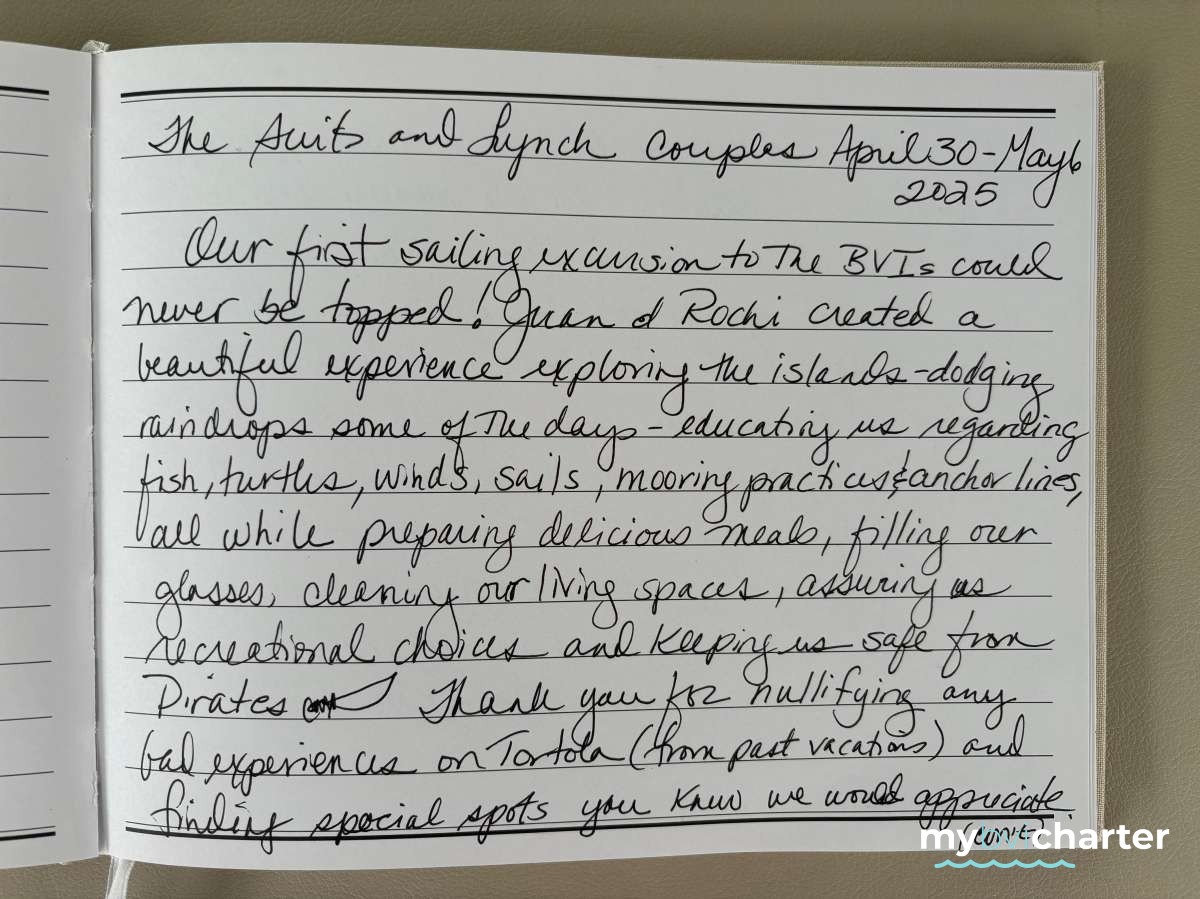 The Suits and Lynch Couples April 30-May 6
2025
Our first sailing excursion to The BVIs could
never be topped! Juan & Rochi created a
beautiful experience exploring the islands-dodging
raindrops some of The days - educating us regarding
fish, turtles, winds, sails, mooring practices & anchor lines,
all while preparing delicious meals, filling our
glasses, cleaning our living spaces, assuring us
recreational choices and keeping us safe from
Pirates Thank you for nullifying any
bad experiences on Tortola (from past vacations) and
finding special spots you knew we would appreciate.
(con't)
my charter